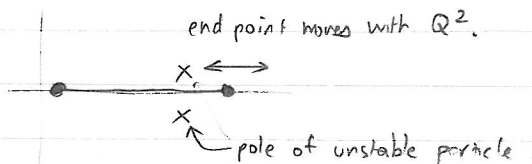 end point moves with Q².
X
X
pole of unstable particle